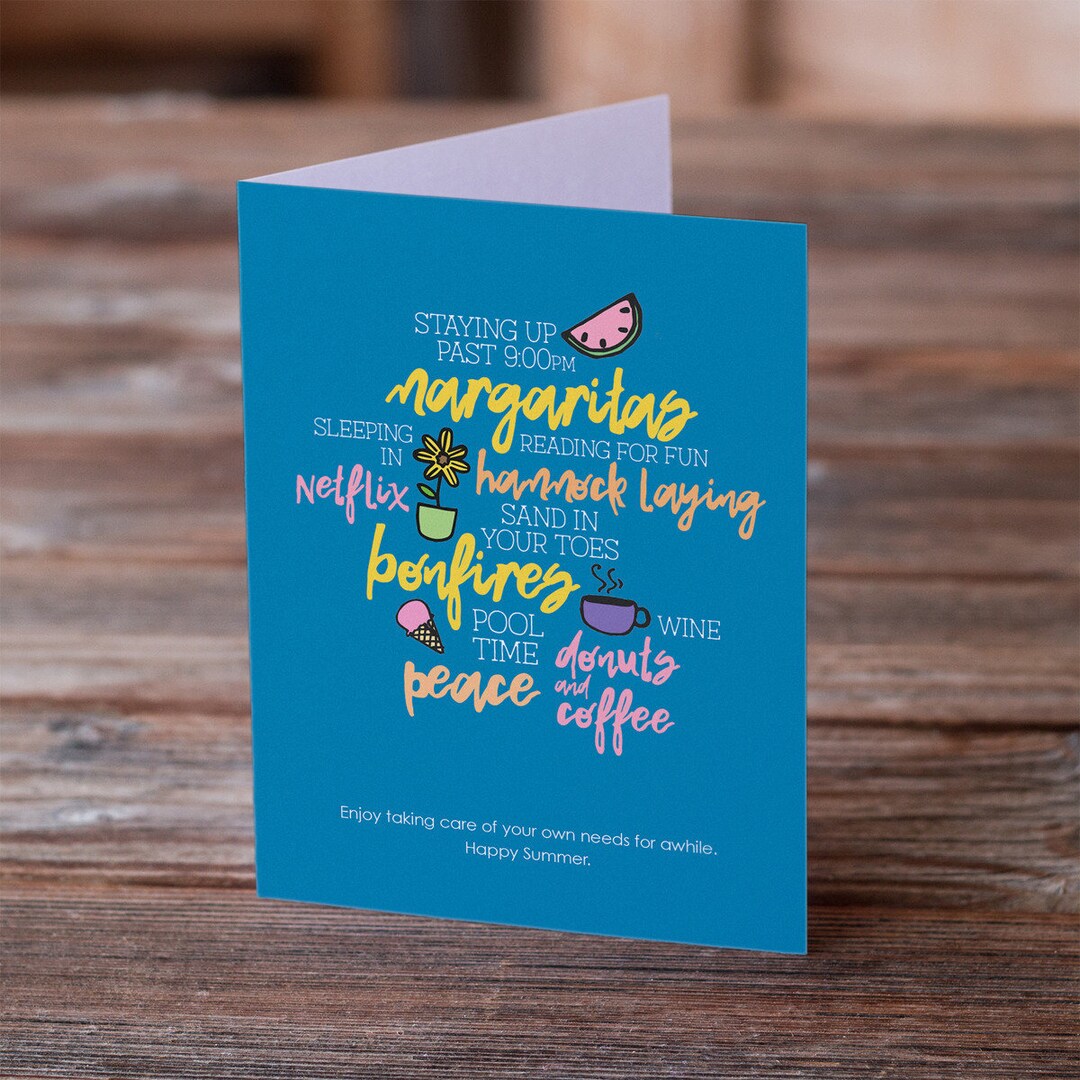 STAYING UP
PAST 9:00PM
margaritas
SLEEPING
IN
READING FOR FUN
Netflix
hammock laying
SAND IN
YOUR TOES
bonfires
POOL
TIME
WINE
donuts
and
coffee
peace
Enjoy taking care of your own needs for awhile.
Happy Summer.